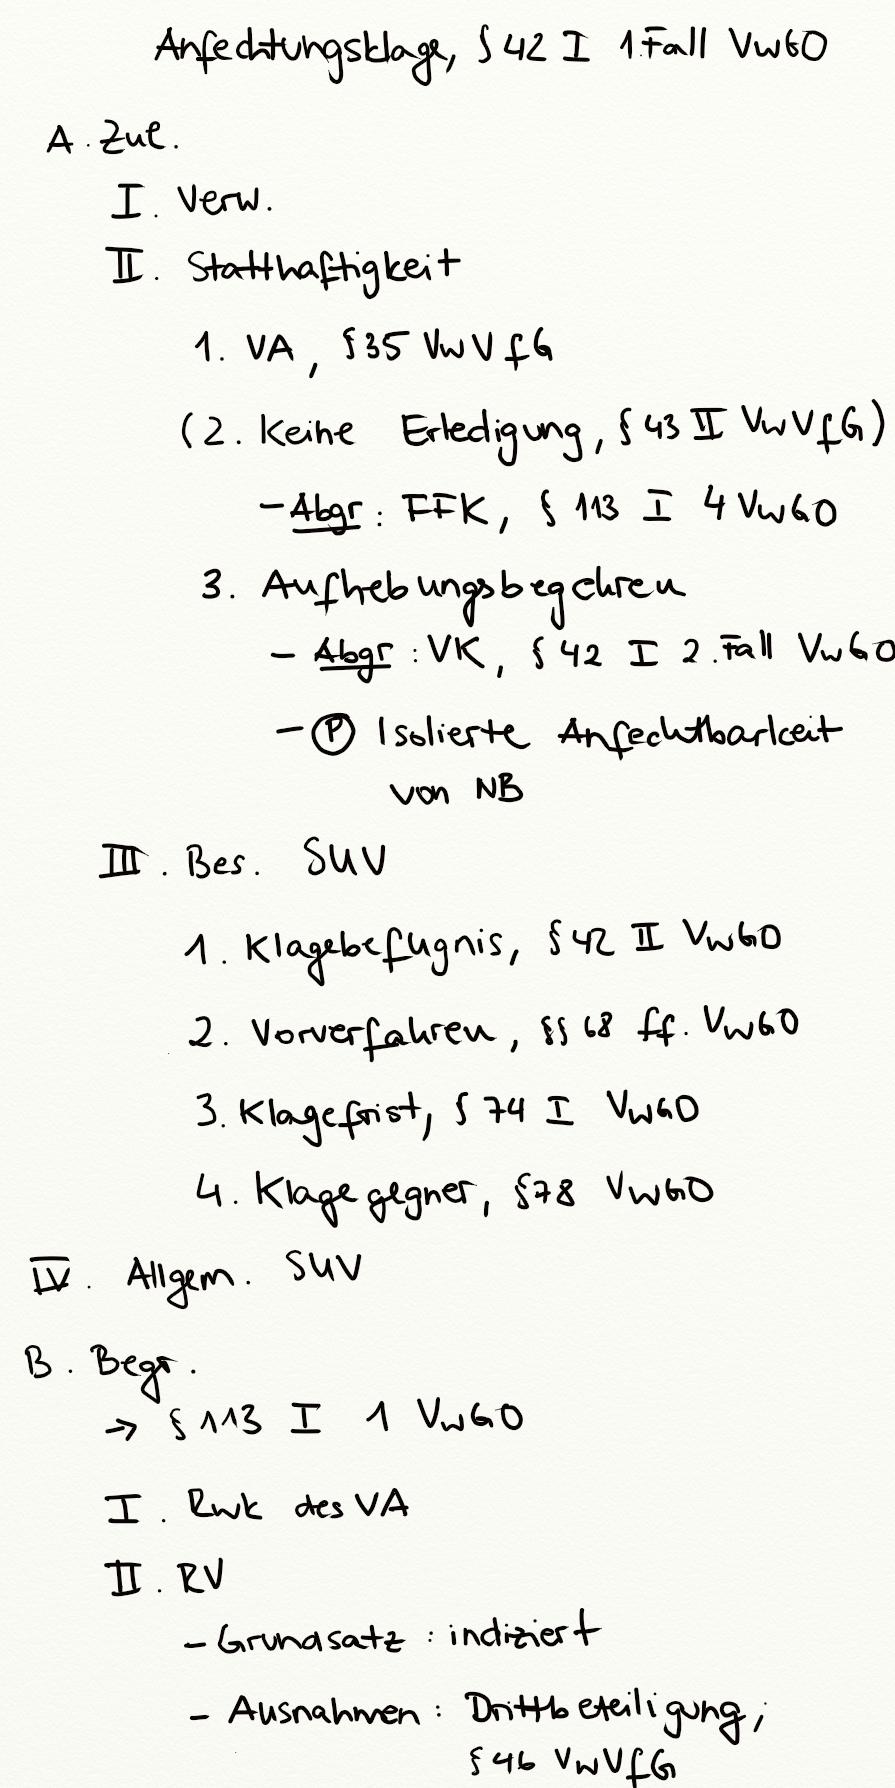 Anfechtungsklage, § 42 I 1.Fall VwGO
A. Zul.
I. Verw.
II. Statthaftigkeit
1. VA, § 35 VwVfG
(2. Keine Erledigung, § 43 II VwVfG)
- Abgr: FFK, § 113 I 4 VwGO
3. Aufhebungsbegehren
- Abgr: VK, § 42 I 2.Fall VwGO
- (P) Isolierte Anfechtbarkeit
von NB
III. Bes. SUV
1. Klagebefugnis, § 42 II VwGO
2. Vorverfahren, §§ 68 ff. VwGO
3. Klagefrist, § 74 I VwGO
4. Klagegegner, § 78 VwGO
IV. Allgem. SUV
B. Begr.
→ § 113 I 1 VwGO
I. Rwk des VA
II. RV
- Grundsatz: indiziert
- Ausnahmen: Drittbeteiligung,
§ 46 VwVfG